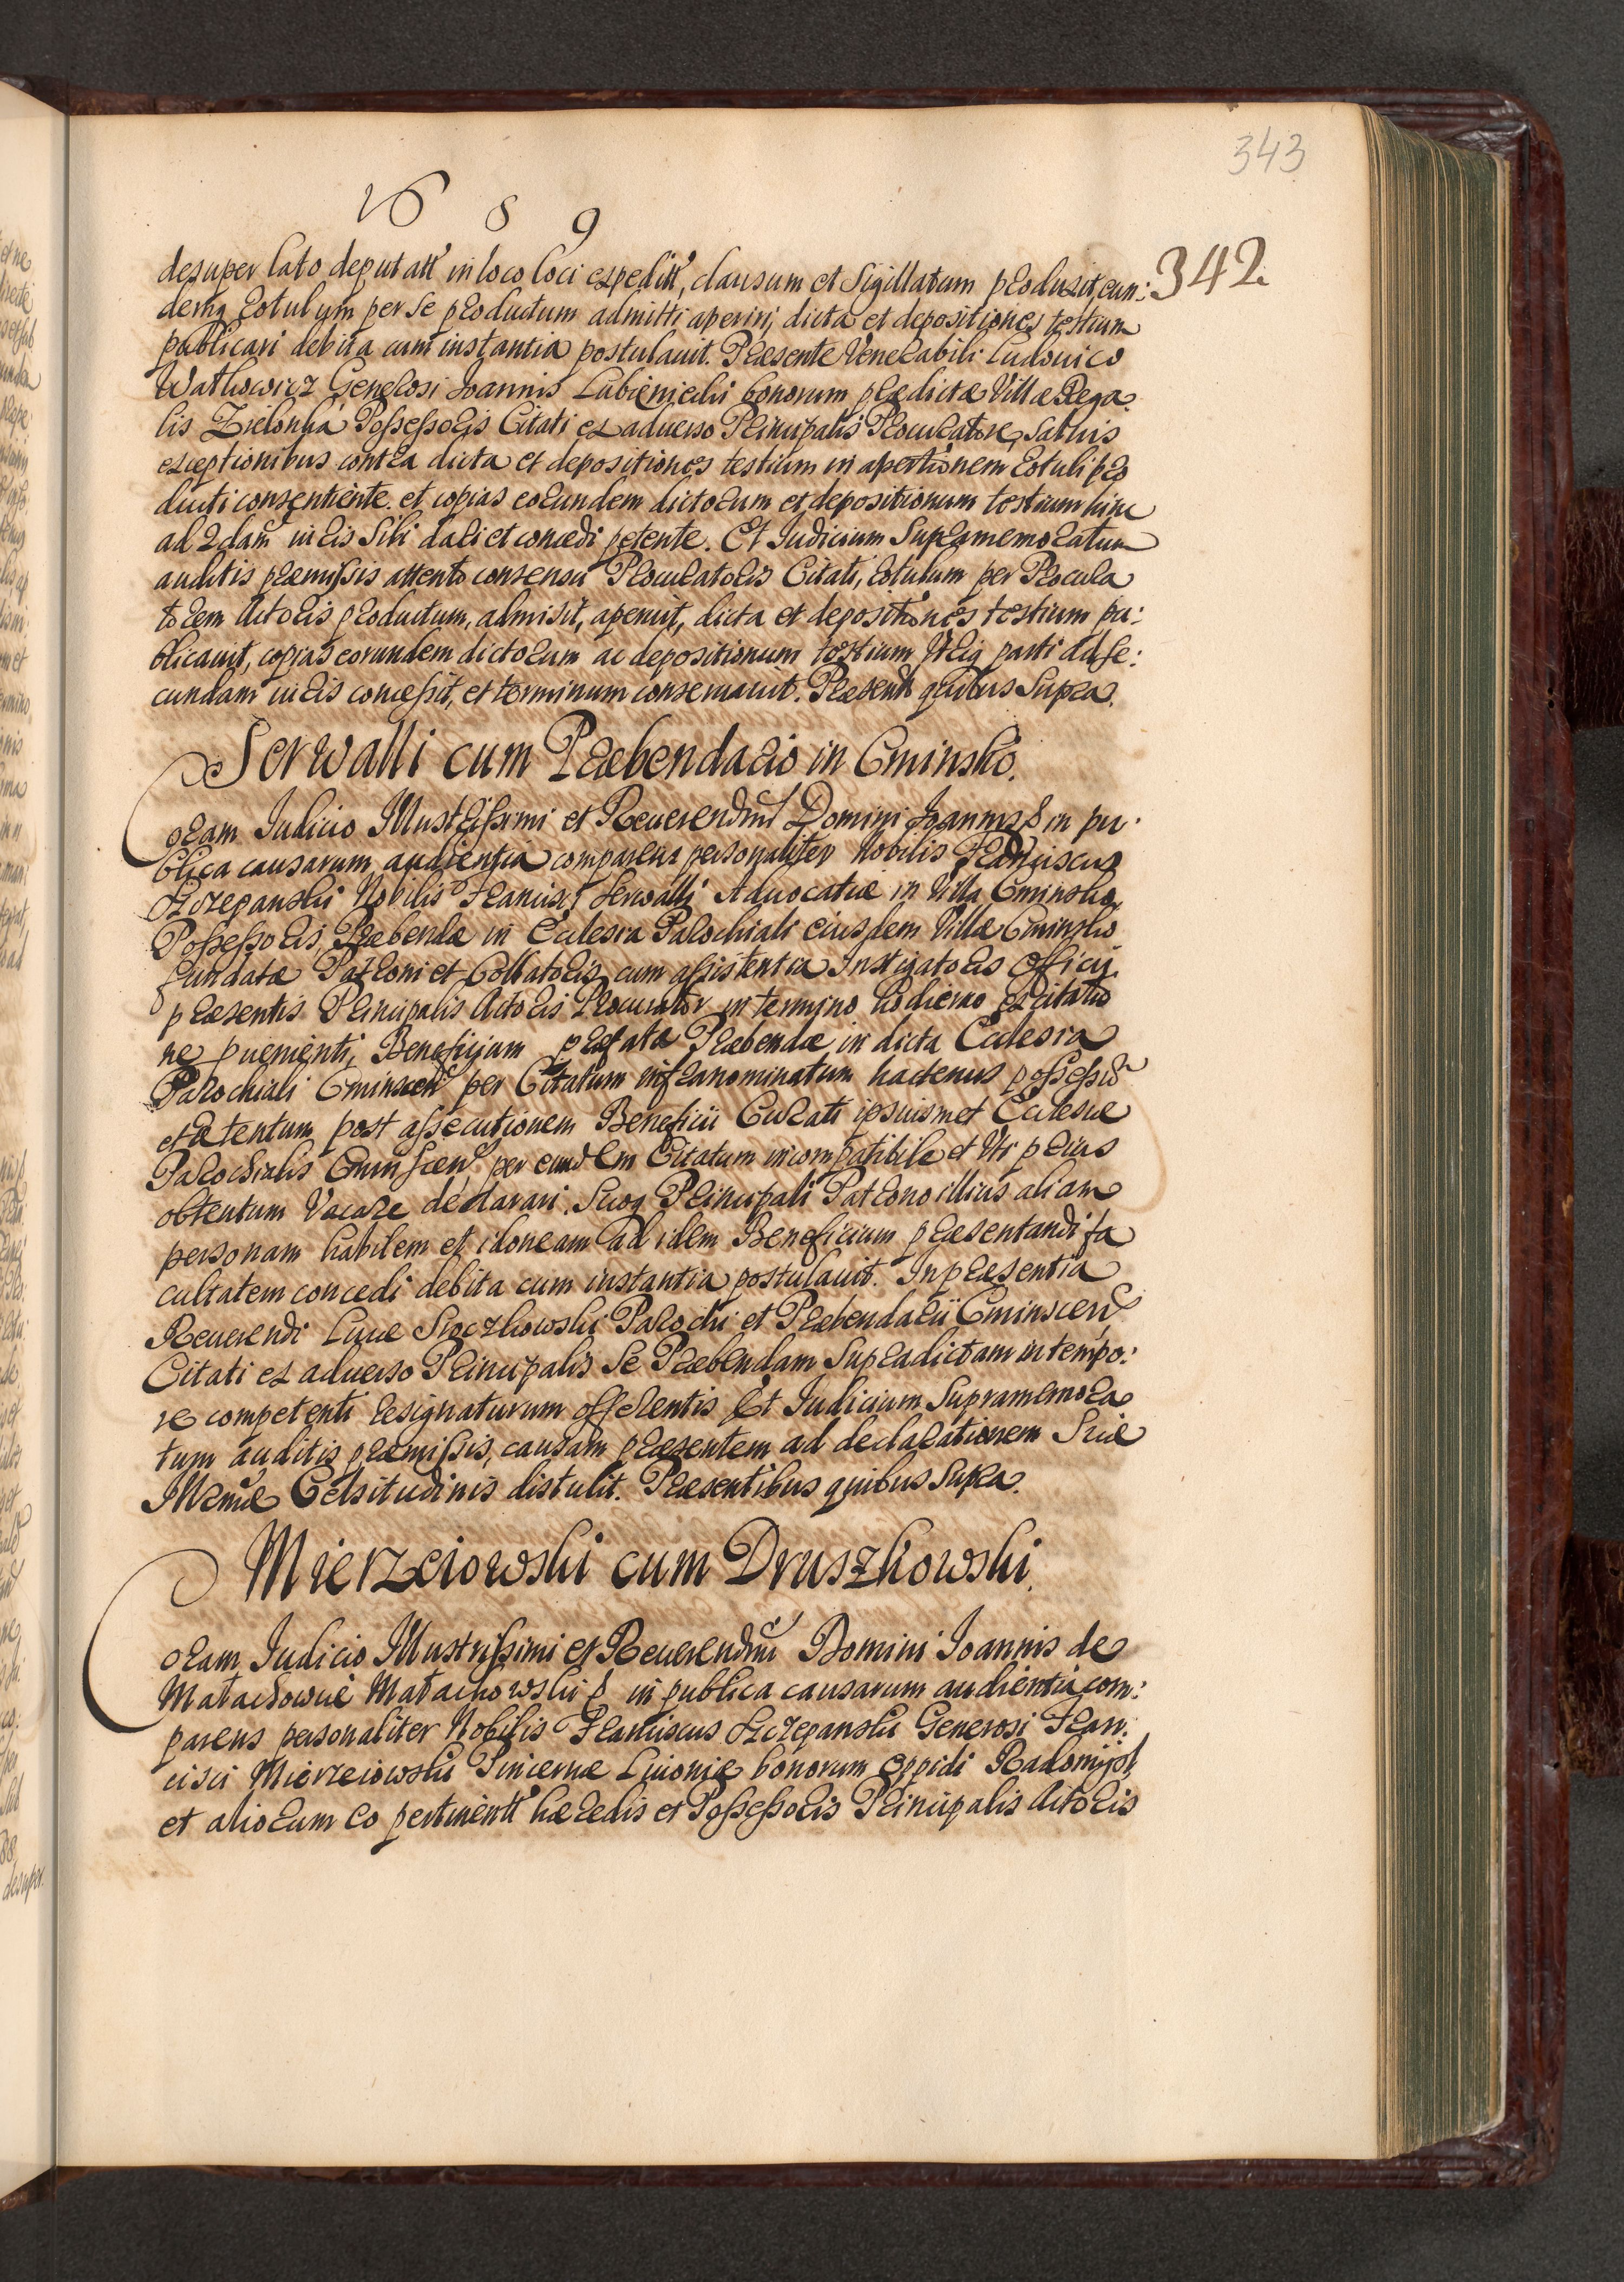 343
1689
342.
desuper lato deputatt' in loco loci expeditt', clausum et Sigillatum produxit, eun:
demq Rotulum per se productum admitti aperiri, dicta et depositiones testium
publicari debita cum instantia postulauit. Præsente Venerabili Ludouico
Wathowicz Generosi Joannis Lubieniechi bonorum prædictæ Villæ Rega
lis Zielonha Possessoris Citati ex aduerso Principalis Procuratore, Saluis
exceptionibus contra dicta et depositiones testium in apertionem Rotuli pro
ducti consentiente. et copias eorundem dictorum et depositionum testium hinc
ad 2dam iuris Sibi dari et concedi petente. Et Judicium Supramemoratum
auditis præmissis attento consensu Procuratoris Citati, rotulum per Procura
torem Actoris productum, admisit, aperuit, dicta et depositiones testium pu:
blicauit, copias eorundem dictorum ac depositionum testium parti ad se:
cundam iuris concessit, et terminum conseruauit. Præsentt quibus Supra.
Serwatti cum Præbendario in Cminsko.
Coram Judicio Illustrissimi et Reuerendmi Domini Joannis & in pu:
blica causarum audientia comparens personaliter Nobilis Franciscus
Szczepanski Nobilis Francisci Serwatti Aduocatiæ in Villa Cminsko
Possessoris, Præbendæ in Ecclesia Parochiali eiusdem Villæ Cminsko
fundatæ Patroni et Collatoris, cum assistentia Instigatoris Officij
præsentis Principalis Actoris Procurator in termino hodierno ex citatio
ne puenienti, Beneficium præfatæ Præbendæ in dicta Ecclesia
Parochiali Cminscen per Citatum infranominatum hactenus possessum
et detentum post assecutionem Beneficii Curati ipsiusmet Ecclesiæ
Parochialis Cminscen per eundem Citatum incompatibile et Vti prius
obtentum Vacare declarari. Suoq Principali Patrono illius aliam
personam habilem et idoneam ad idem Beneficium præsentandi fa
cultatem concedi debita cum instantia postulauit. In præsentia
Reuerendi Lucæ Skoczkowski Parochi et Præbendarii Cminscen
Citati ex aduerso Principalis Se Præbendam Supradictam in tempo:
re competenti resignaturum offerentis Et Judicium Supramemora
tum auditis præmissis, causam præsentem ad declarationem Suæ
Illmæ Celsitudinis distulit. Præsentibus quibus Supra.
Mierzeiowski cum Druszkowski.
Coram Judicio Illustrissimi et Reuerendmi Domini Joannis de
Małachowice Małachowski & in publica causarum audientia com:
parens personaliter Nobilis Franciscus Szczepanski Generosi Fran:
cisci Mierzeiowski Pincernæ Liuoniæ bonorum oppidi Radomijsl,
et aliorum eo pertinentt' hæredis et Possessoris Principalis Actoris